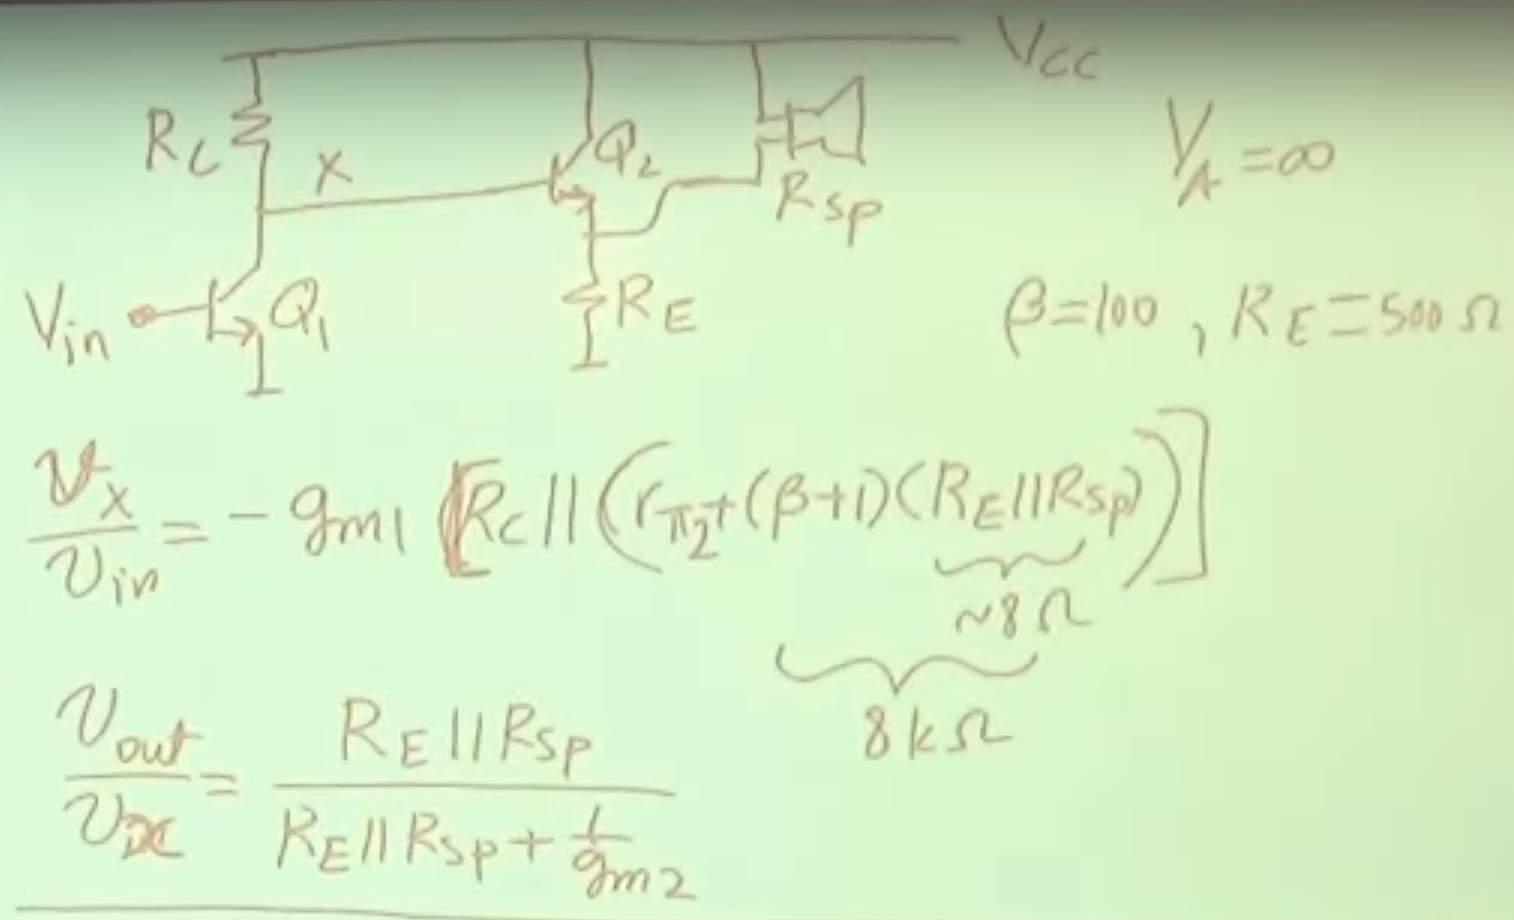 V_CC
R_C
X
Q_2
R_SP
V_A = ∞
V_in
Q_1
R_E
β=100 , R_E = 500 Ω
v_x / v_in = - g_m1 [R_C || (r_π2 + (β+1)(R_E || R_SP))]
~8 Ω
8 kΩ
v_out / v_x = R_E || R_SP / R_E || R_SP + 1/g_m2